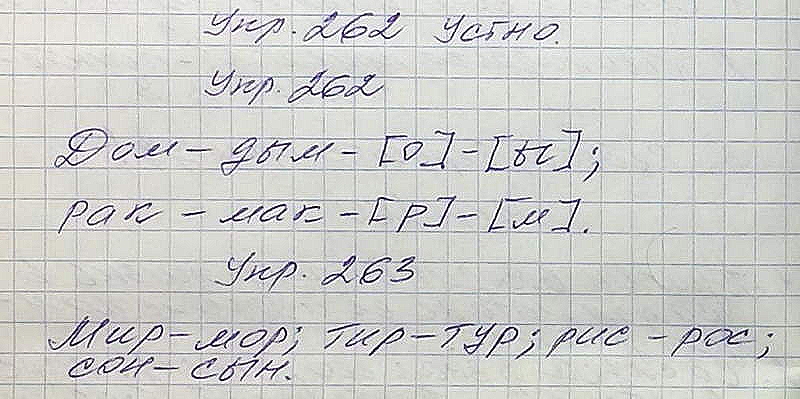 Укр. 262 Устно.
Укр. 262
Дом – дым – [о] – [ы];
рак – мак – [р] – [м].
Укр. 263
Мир – мор; тир – тур; рис – рос;
сон – сын.